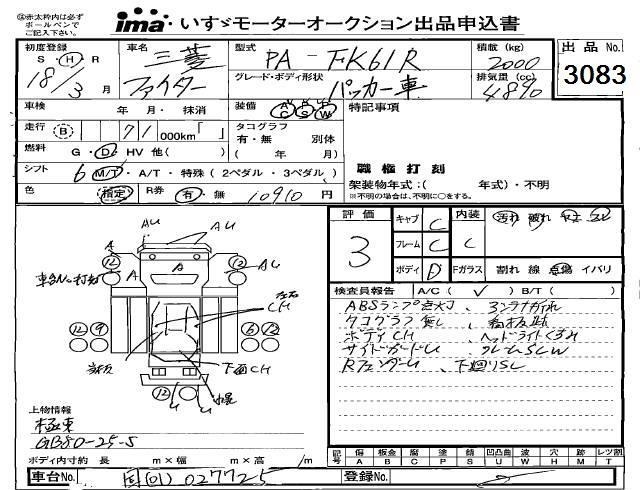 ㊟赤太枠内は必ず
ボールペンで
ご記入下さい。
ima いすゞモーターオークション出品申込書
初度登録 S・H・R 18/3 月
車名 三菱 ファイター
型式 PA-FK61R
グレード・ボディ形状 パッカー車
積載 (kg) 2000
排気量 (cc) 4890
出品 No. 3083
車検 年・月・抹消
装備 AC PS AW
特記事項
走行 B 71 000km「 」
タコグラフ 有・無 別体 ( 年 月)
燃料 G・D・HV 他( )
職権打刻
シフト 6 M/T・A/T・特殊 (2ペダル・3ペダル)
架装物年式:( 年式)・不明
※不明の場合は、不明に○をする。
色 指定 R券 有・無 10910 円
評価 3
キャブ C
フレーム C
ボディ D
内装 C 汚れ 破れ
Fガラス 割れ 線 点傷 イバリ
検査員報告 A/C( ✓ ) B/T( )
ABSランプ点灯、
タコグラフ無し、
ボディCH ヘッドライトくすみ
サイドガードU フレームSCW
RフェンダーU、下廻りSC
AU
AU
A
A
A
12
12
AU
車台No打刻
左右
CH
12 9
6 12
下面CH
12
U U
上物情報
極東
GB80-25-S
ボディ内寸約 長 m×幅 m×高 m
記号 傷 板金 腐 凹 錆 凹凸曲 波 穴 跡 レツ割
A B C P S U W H M T
車台No. 国[01]027725
登録No.